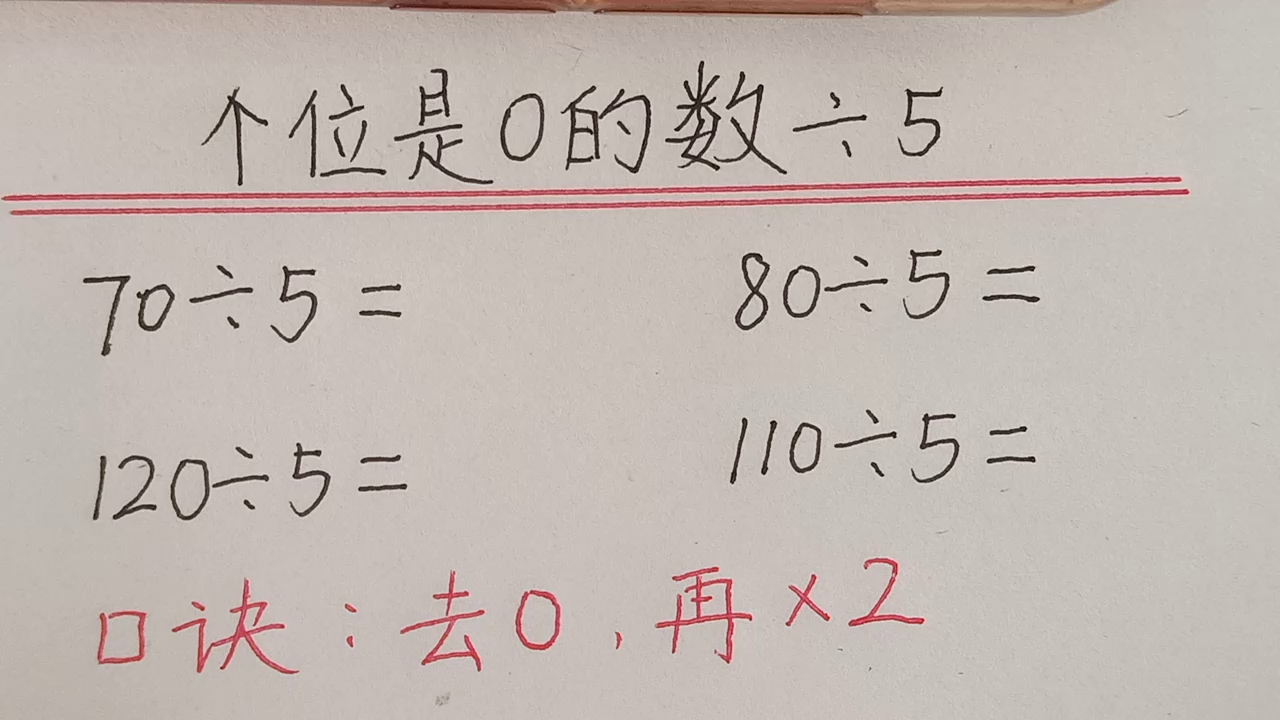 个位是0的数÷5
70÷5= 80÷5=
120÷5= 110÷5=
口诀:去0,再×2